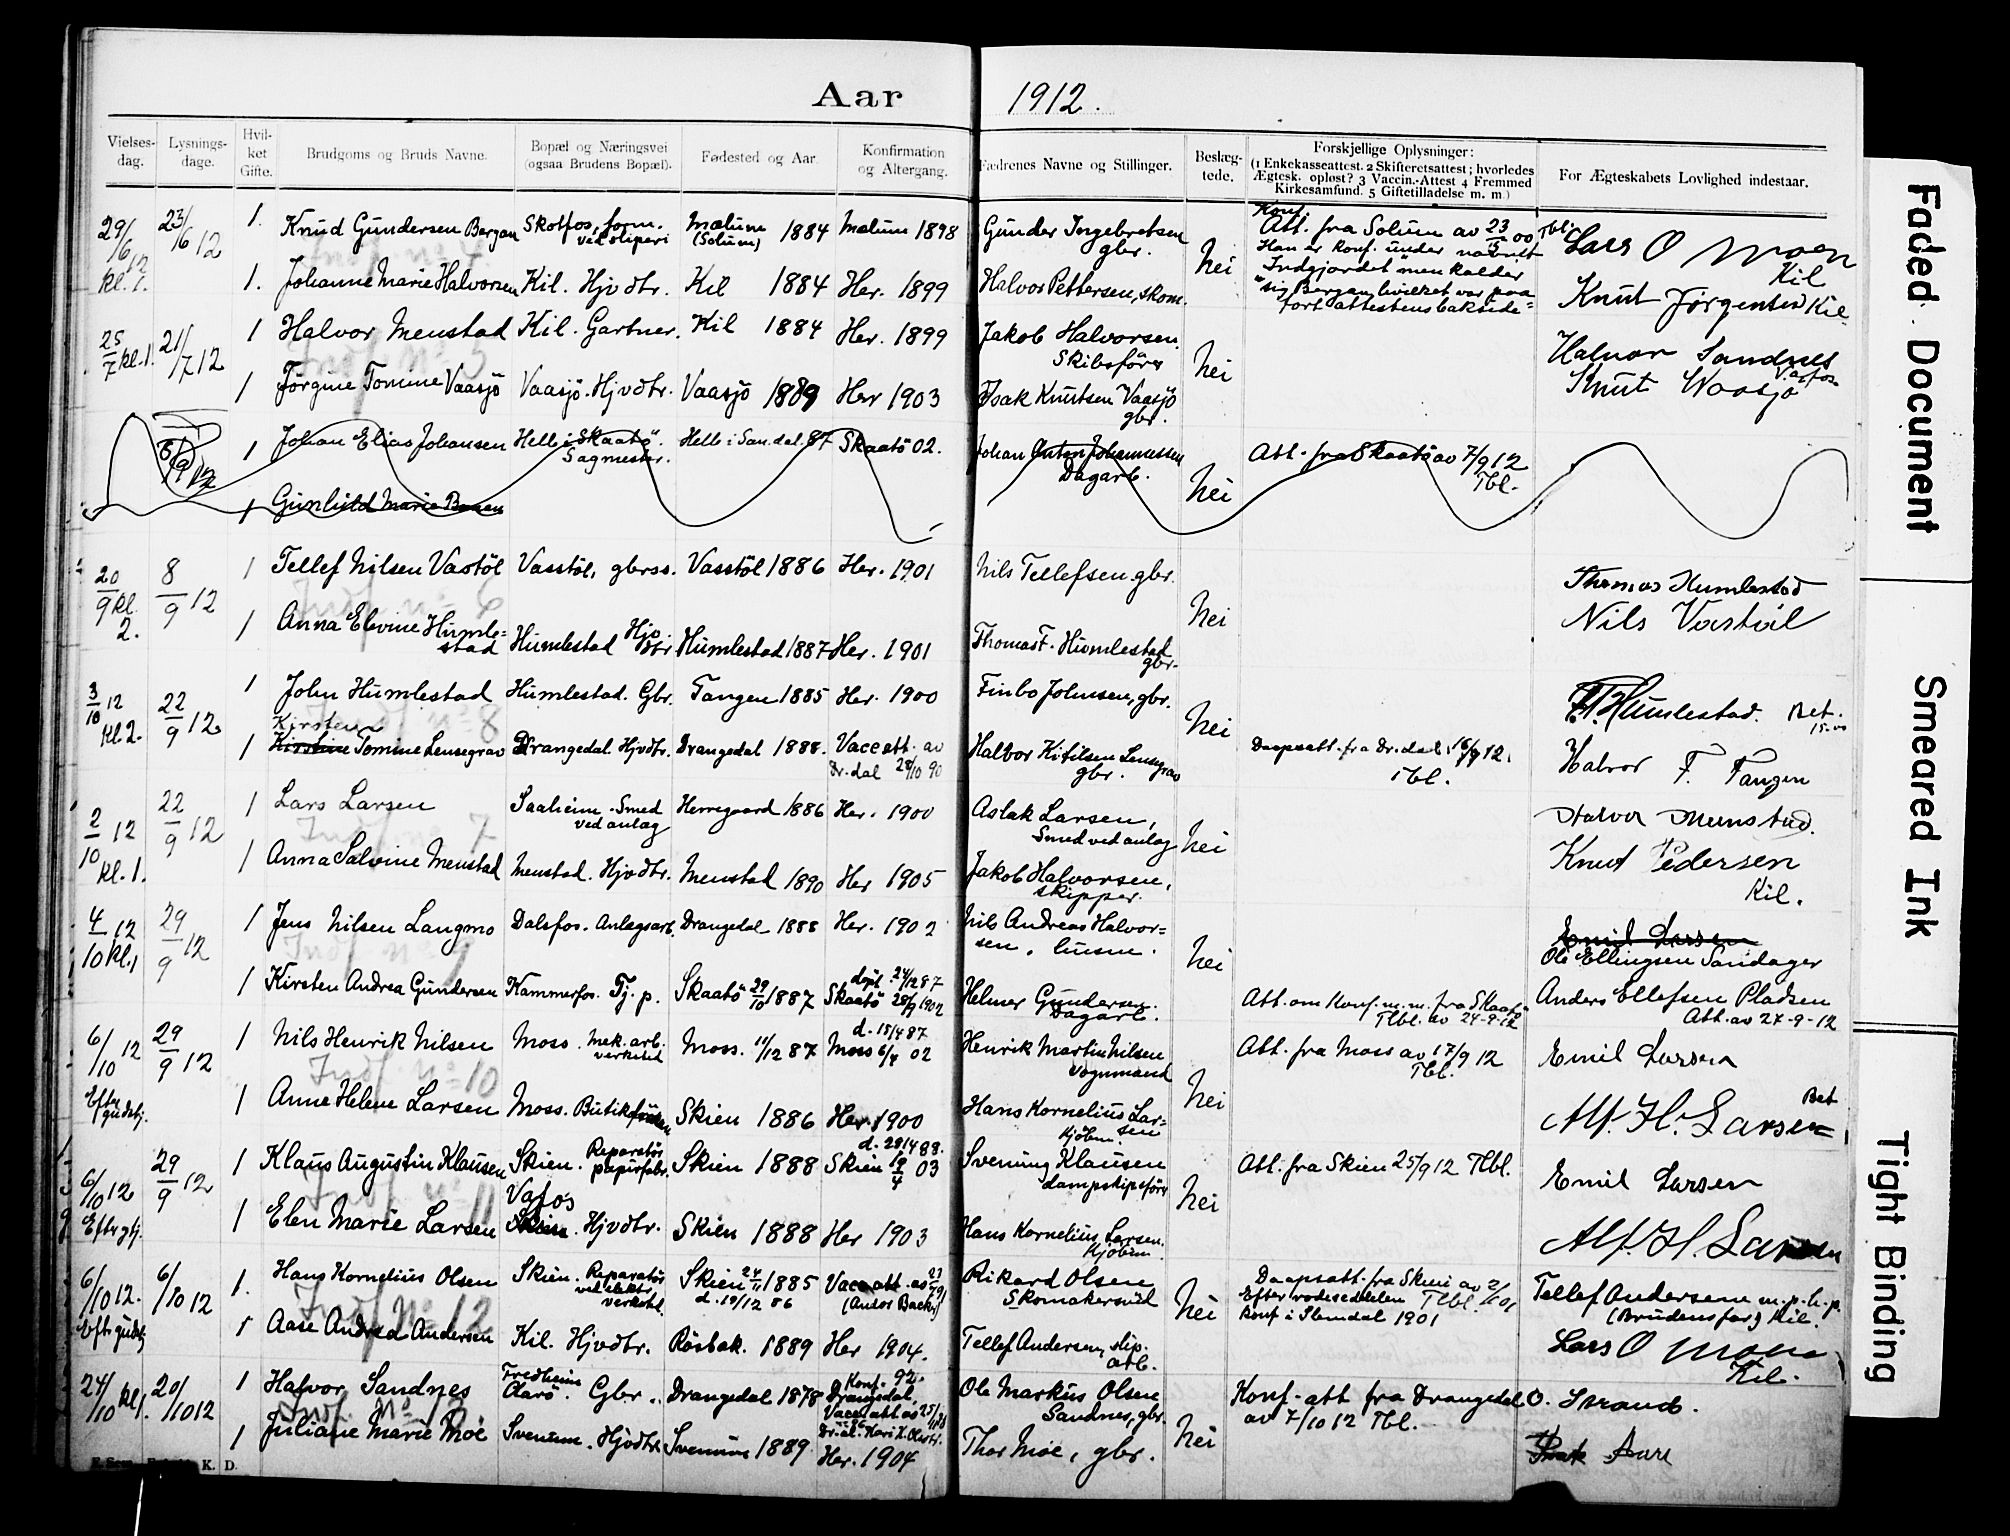 Aar 1912.
Vielses-dag. Lysnings-dage. Hvil-ket Gifte. Brudgoms og Bruds Navne. Bopæl og Næringsvei (ogsaa Brudens Bopæl). Fødested og Aar. Konfirmation og Altergang. Fædrenes Navne og Stillinger. Beslæg-tede. Forskjellige Oplysninger: (1 Enkekasseattest. 2 Skifteretsattest; hvorledes Ægtesk. opløst? 3 Vaccin.-Attest 4 Fremmed Kirkesamfund. 5 Giftetilladelse m. m.) For Ægteskabets Lovlighed indestaar.
29/6 12 kl. 1. 23/6 12 1. Knud Gundersen Bergan Skotfos, form. ved sliperi Mælum (Solum) 1884 Mælum 1898 Gunder Ingebretsen gbr. Nei Konf. Att. fra Solum av 23/5 00 Tbl. Lars O Moen Kil
Han er konf. under navnet
"Indgjordet" men kalder
sig Bergan hvilket var paa-
ført attestens bakside
1. Johanne Marie Halvorsen Kil. Hjvdtr. Kil 1884 Her. 1899 Halvor Pettersen, skom. Knut Jørgensen Kil
25/7 kl. 1. 21/7 12 1 Halvor Menstad Kil. Gartner. Kil 1884 Her. 1899 Jakob Halvorsen. Skibsfører Nei Halvor Sandnes Vafos
1 Jørgine Tomine Vaasjø Vaasjø. Hjvdtr. Vaasjø 1889 Her 1903 Isak Knutsen Vaasjø gbr. Knut Waasjø
8/9 12 1 Johan Elias Johansen Helle i Skaatø. Sagmester. Helle i San.dal. 87 Skaatø 02. Johan Anton Johannessen Dagarb. Nei Att. fra Skaatø av 7/9 12 Tbl.
1 Gunhild Marie
20/9 kl. 2. 8/9 12 1 Tellef Nilsen Vastøl Vasstøl, gbrss. Vasstøl 1886 Her. 1901 Nils Tellefsen gbr. Nei Thomas Humlestad
1 Anna Elevine Humle-stad Humlestad Hjv dtr. Humlestad 1887 Her. 1901 Thomas F. Humlestad gbr. Nils Vastøl
3/10 12 kl. 2. 22/9 12 1 John Humlestad Humlestad. Gbr. Tangen 1885 Her. 1900 Finbo Johnsen, gbr. Nei Humlestad. Bet. 15.00
Kirsten
1 Kirstine Tomine Lensegrav Drangedal Hjvdtr. Drangedal 1888. Vacc att. av Dr.dal 28/10 90 Halvor Kitilsen Lensegrav gbr. Daapsatt. fra Dr.dal 16/9 12. Tbl. Halvor F. Tangen
2/10 12 kl. 1. 22/9 12 1 Lars Larsen Saaheim. Smed ved anlag Herregaard 1886 Her. 1900 Aslak Larsen, Smed ved anlag Nei Halvor Menstad.
1 Anna Salvine Menstad Menstad. Hjvdtr. Menstad 1890 Her 1905 Jakob Halvorsen, skipper. Knut Pedersen Kil.
4/10 12 kl. 1 29/9 12 1 Jens Nilsen Langmo Dalsfos. Anlegsarb. Drangedal 1888 Her. 1902 Nils Andreas Halvor-sen, husm. Nei Emil Larsen
Ole Ellingsen Sandager
1 Kirsten Andrea Gundersen Kammerfos. Tj. p. Skaatø 29/10 1887 døpt. 24/12 87 Skaatø 28/9 1902 Helmer Gundersen. Dagarb. Att. om Konf. m.m. fra Skaatø Tbl. av 24-9-12 Anders Ellefsen Pladsen Att. av 27-9-12
6/10 12 Efter gudstj. 29/9 12 1 Nils Henrik Nilsen Moss. mek. arb. verksted Moss. 11/12 87 d. 15/4 87 Moss 6/4 02 Henrik Martin Nilsen Vognmand Nei Att. fra Moss av 17/9 12 Tbl. Emil Larsen
1 Anne Helene Larsen Moss. Butik Skien 1886 Her. 1900 Hans Kornelius Lar-sen Kjøbm. Bet Alf. H. Larsen
6/10 12 Eftr gtj. 29/9 12 1 Klaus Augustin Klausen Skien. Reparatør papirfabr. Skien 1888 d. 29/4 88. Skien 19/4 03 Svenung Klausen dampskipsfører Nei Att. fra Skien 25/9 12 Tbl. Emil Larsen
Vafos
1 Elen Marie Larsen Skien. Hjvdtr. Skien 1888 Her 1903 Hans Kornelius Larsen. Kjøbm Alf. H. Larsen
6/10 12. Eftr gudstj 6/10 12 1. Hans Kornelius Olsen Skien. Reparatør ved elektr. verksted. Skien 24/11 1885 d. 19/12 86 Vacc att. as (Andor Backer) Rikard Olsen Skomakersvd Nei Daapsatt. fra Skien av Tbl. Tellef Andersen m.p.h.p. (Brudensfar) Kil.
Efter rodesedelen
Konf i Slemdal 1901
1 Aase Andrea Andersen Kil. Hjvdtr. Røsbak. 1889 Her 1904. Tellef Andersen, slip. arb. Lars O Moen Kil.
24/10 kl. 1. 20/10 12 1 Halvor Sandnes Fredheim Aarø. Gbr.. Drangedal 1878 Konf. 92. Drangedal. Vacc att Ole Markus Olsen Sandnes, gbr. Nei Konf. att fra Drangedal av 7/10 12 Tbl. O. Strand.
1 Juliane Marie Moe Svenum. Hjvdtr. Svenum 1889. Her. 1904 Thor Moe, gbr. Isak Aarø
Indf. No 5
Indf. No 6
Indf. No 8
Indf. No 7
Indf. No 9
Indf. No 10
Indf. No 11
Indf. No 12
Indf. No 13
K. D.
Faded Document
Smeared Ink
Tight Binding